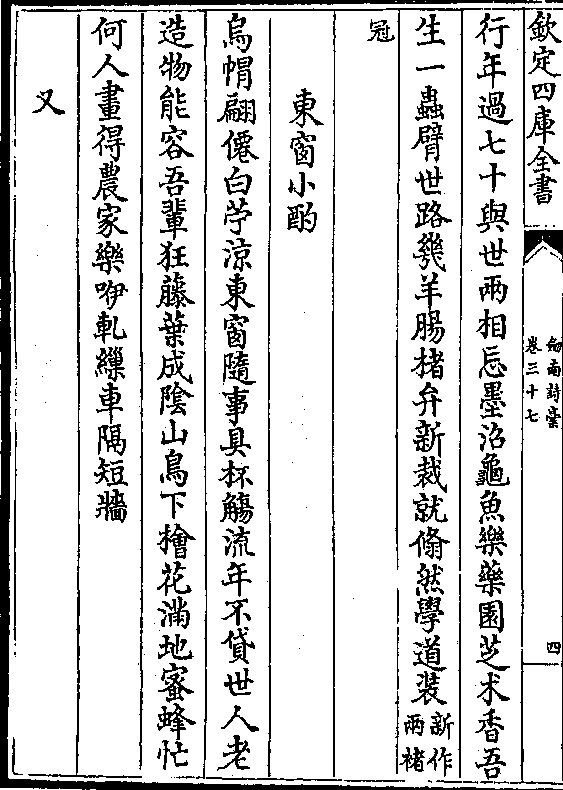 欽定四庫全書
劍南詩稾
卷三十七
四
行年過七十與世兩相忘墨沼龜魚樂藥園芝术香吾
生一蟲臂世路幾羊腸楮弁新裁就翛然學道裝新作兩楮
冠
東窗小酌
烏㡌翩僊白苧涼東窗隨事具杯觴流年不貸世人老
造物能容吾輩狂藤葉成陰山鳥下檜花滿地蜜蜂忙
何人畫得農家樂咿軋繅車隔短牆
又